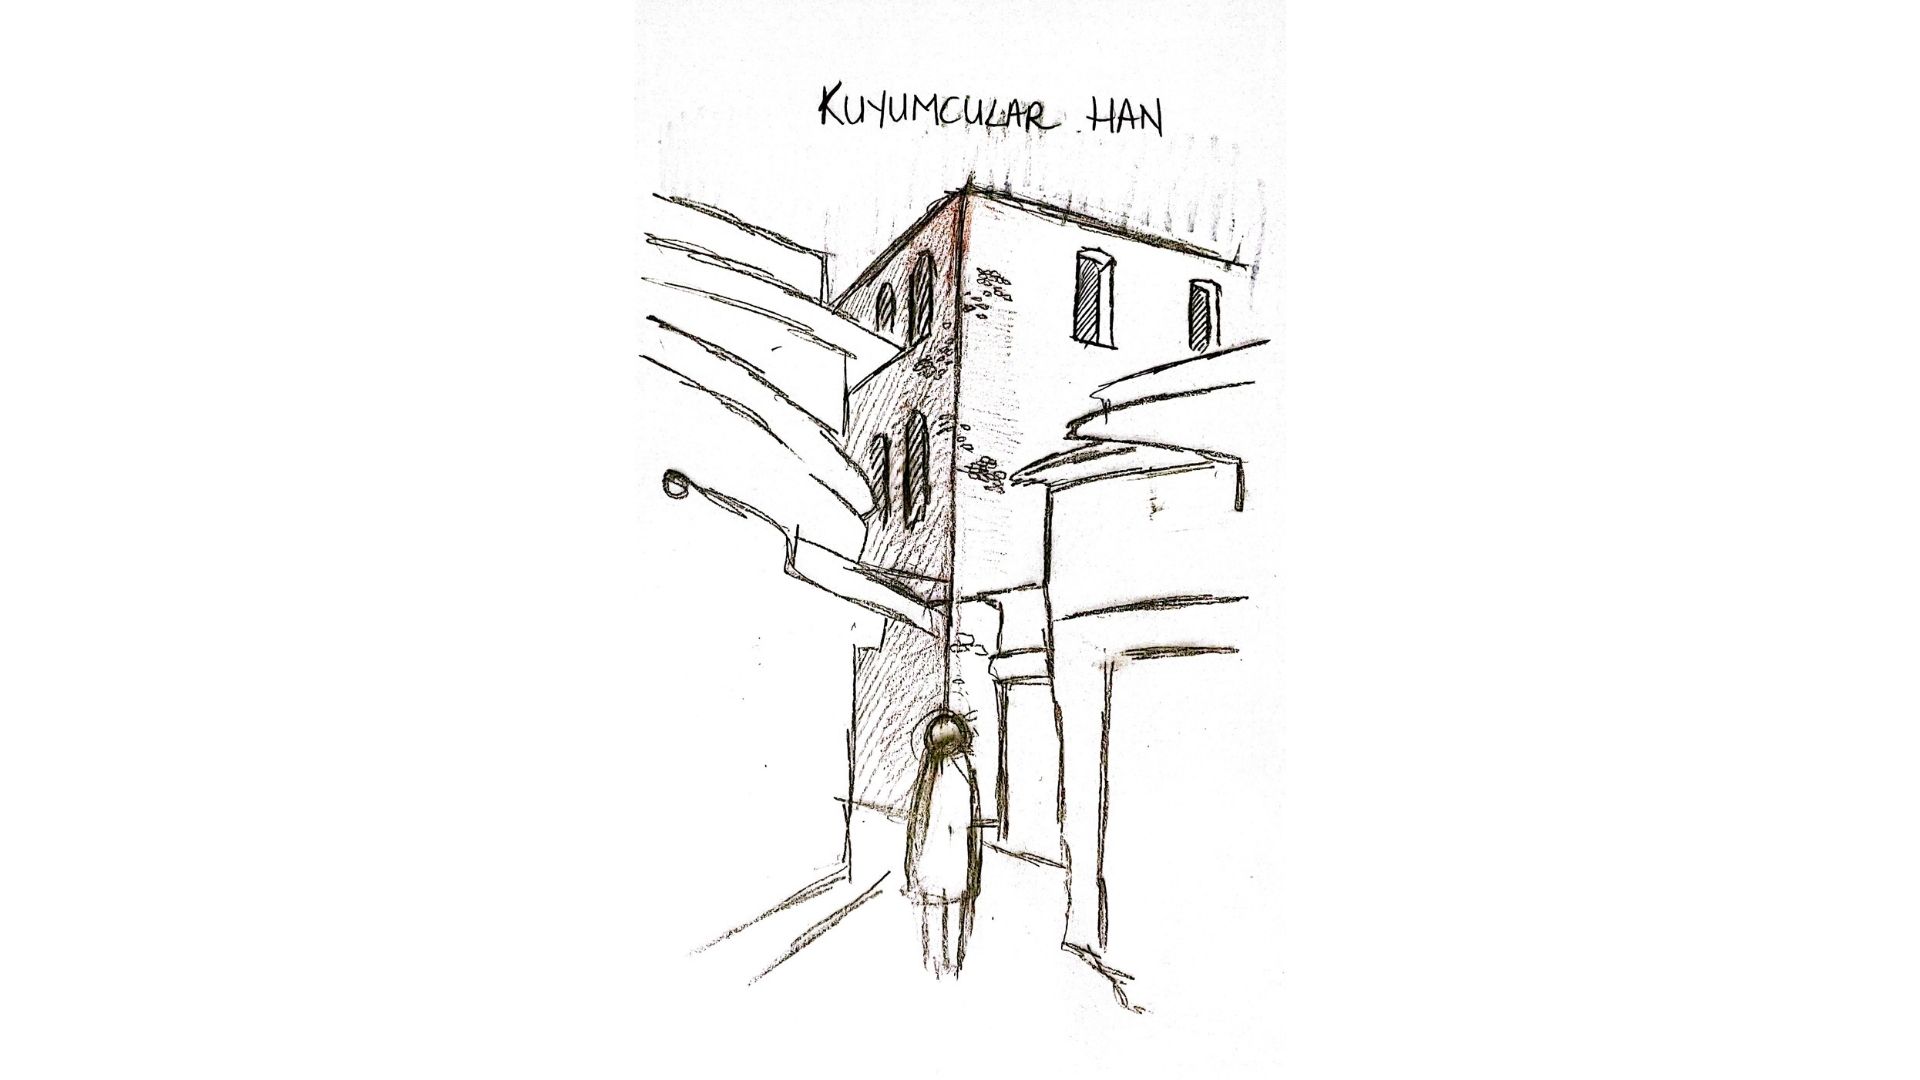 KUYUMCULAR HAN